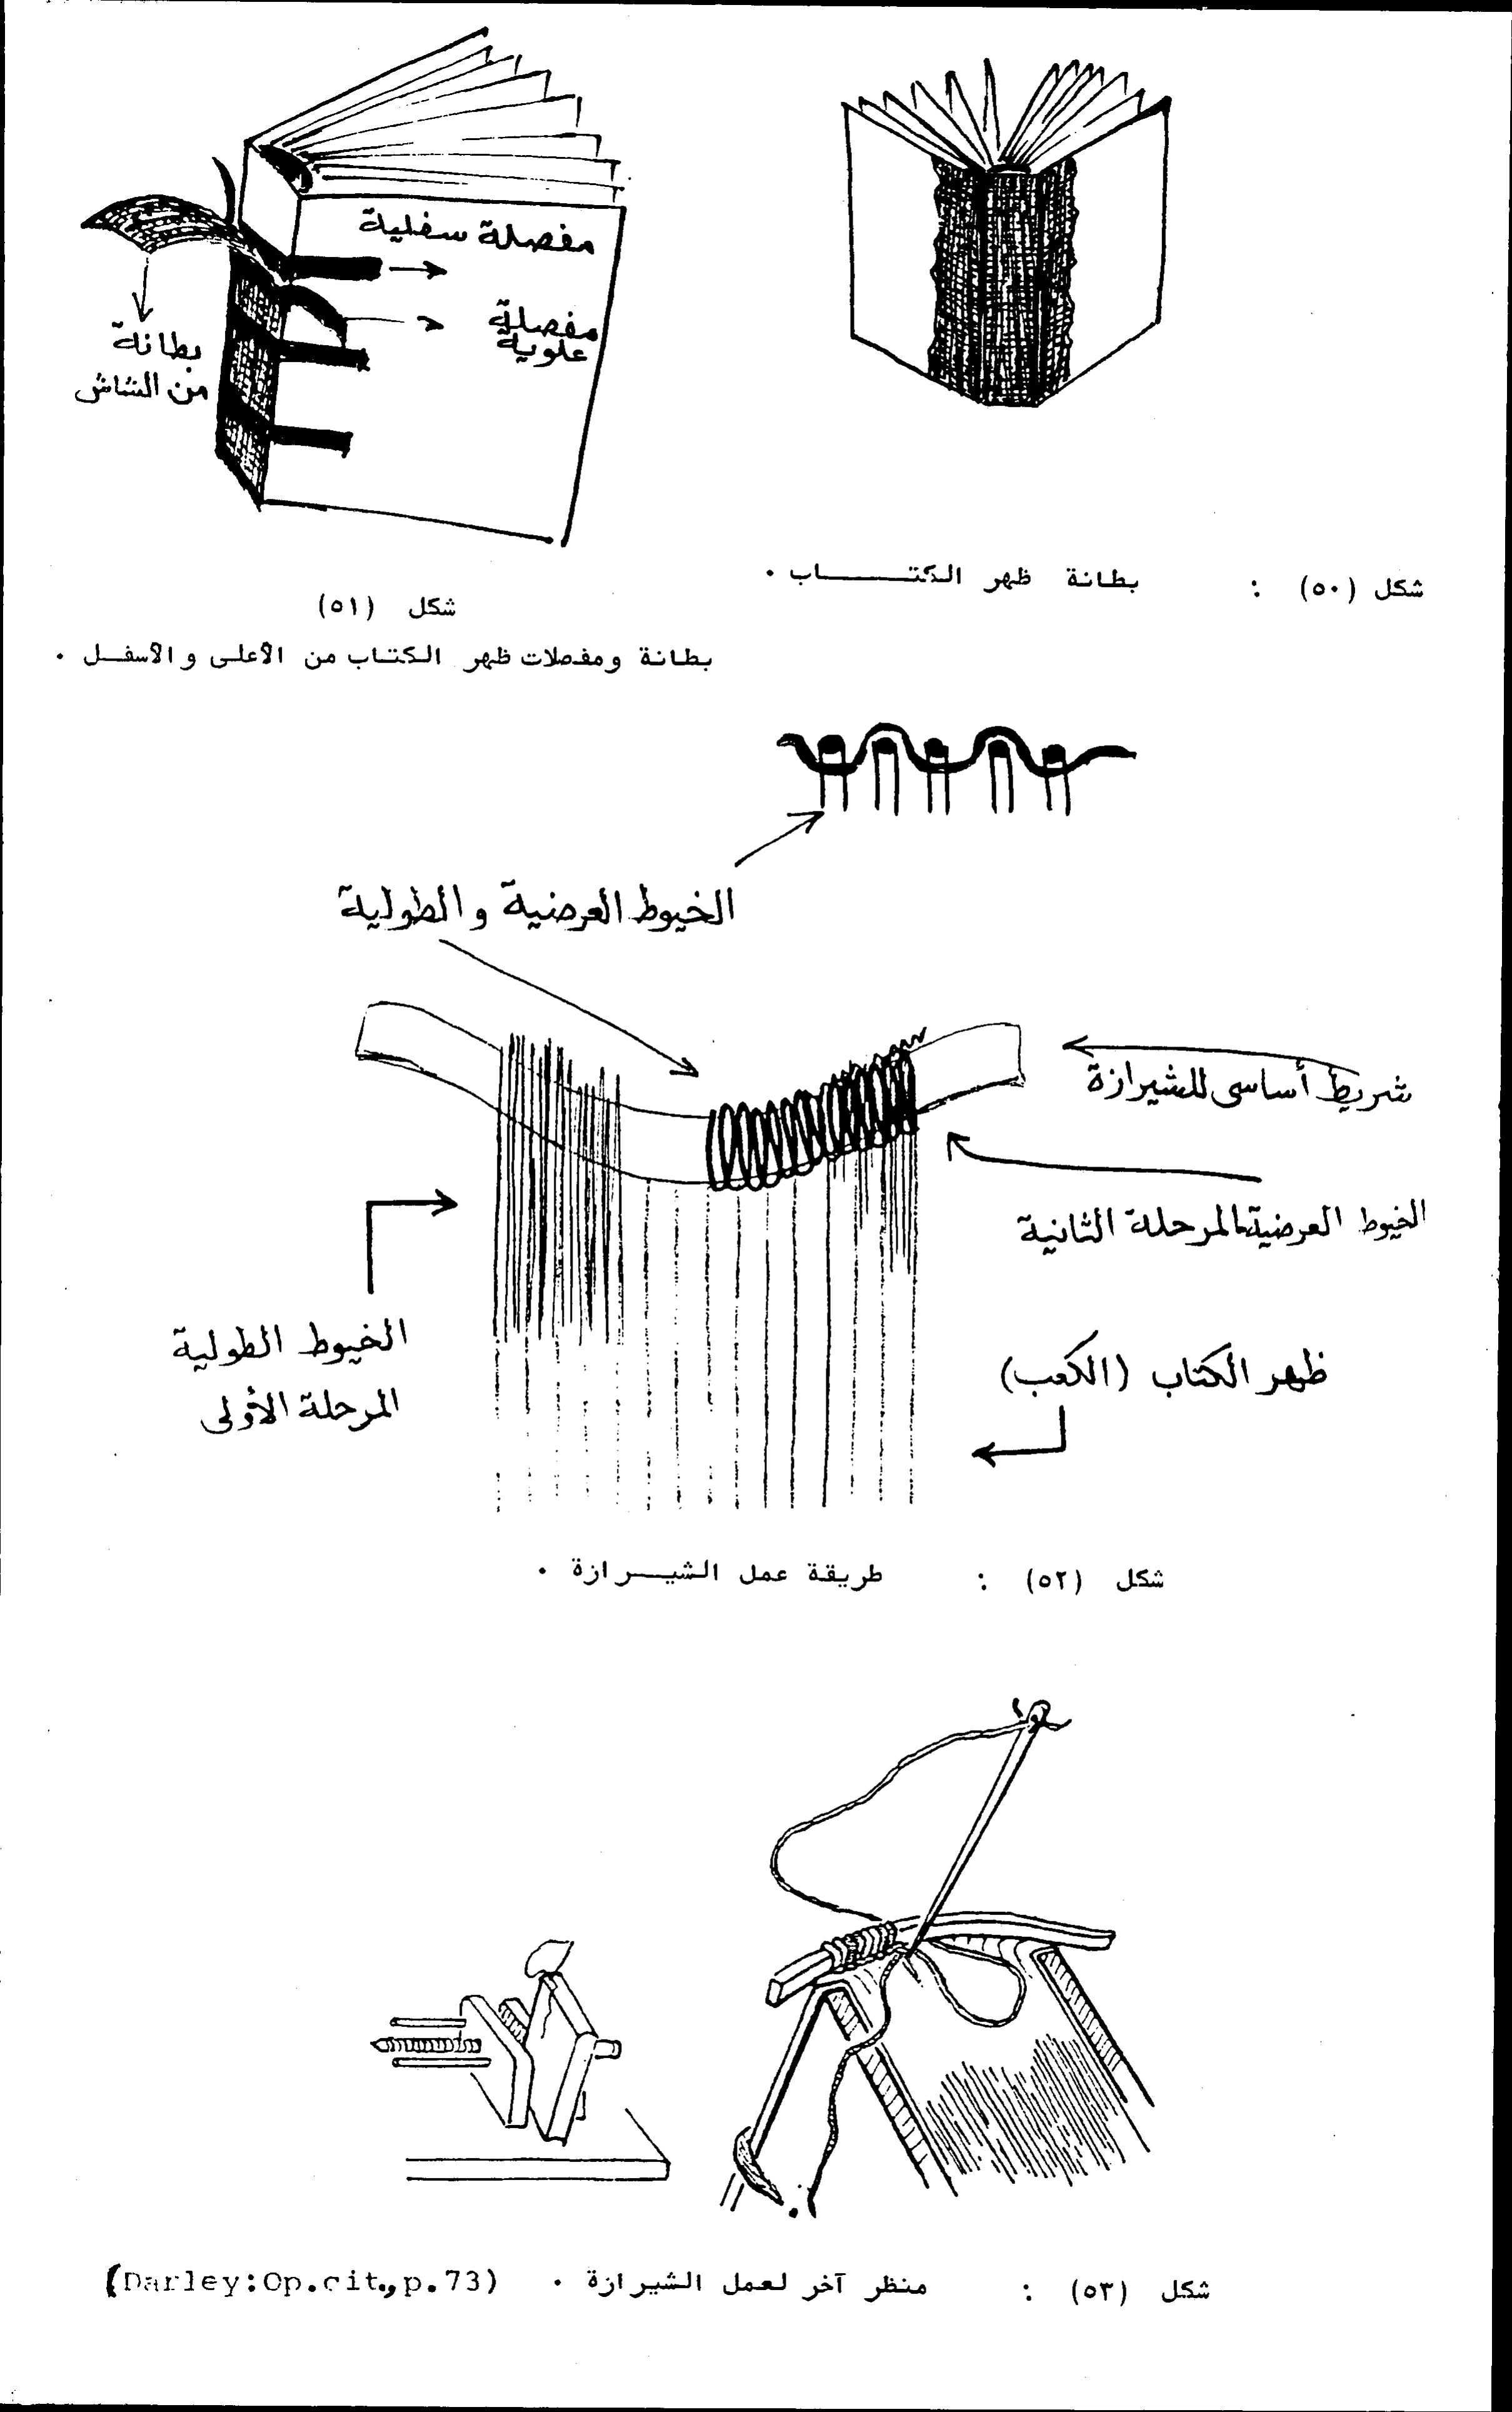 مفصلة سفلية
مفصلة
علوية
بطانة
من الشاش
شكل (٥٠) : بطانة ظهر الكتـــــاب .
شكل (٥١)
بطانة ومفصلات ظهر الكتاب من الأعلى والأسفل .
الخيوط العرضية والطولية
شريط أساسى للشيرازة
الخيوط العرضية المرحلة الثانية
الخيوط الطولية
المرحلة الأولى
ظهر الكتاب (الكعب)
شكل (٥٢) : طريقة عمل الشيـــرازة .
شكل (٥٣) : منظر آخر لعمل الشيرازة . (Darley:Op.cit.,p.73)